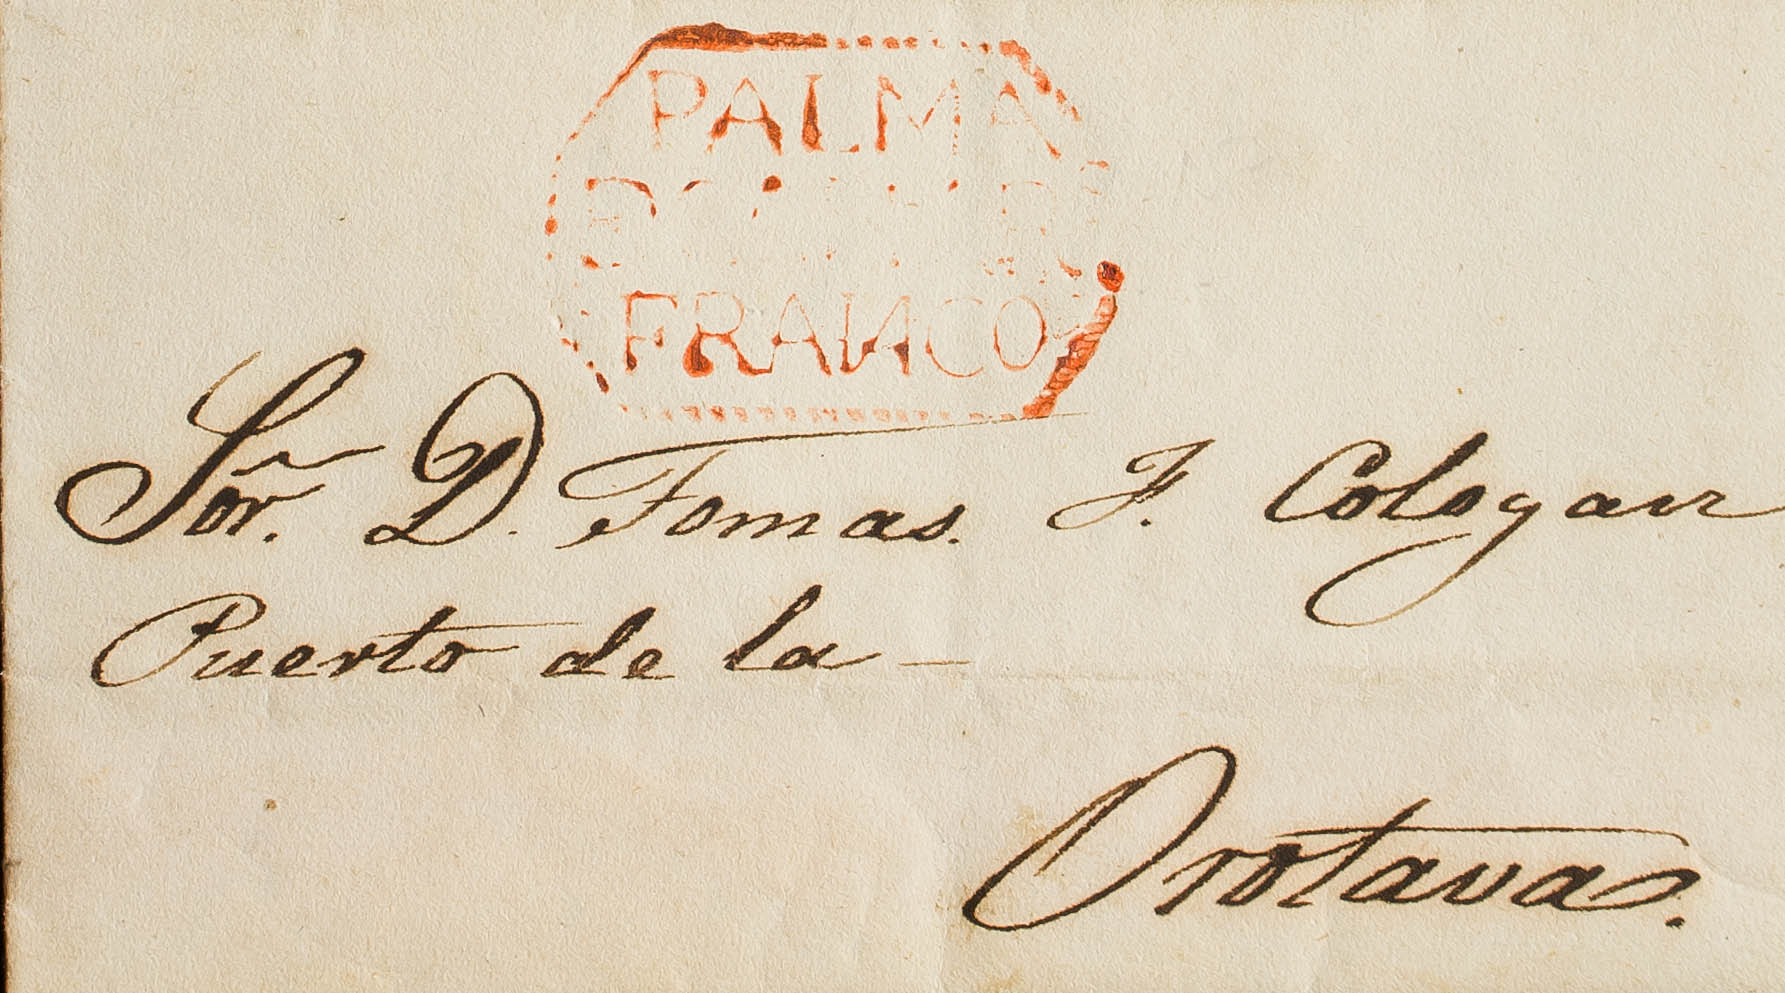 PALMA
FRAИCO
Sor. D. Tomas. F. Cologan
Puerto de la —
Orotava.